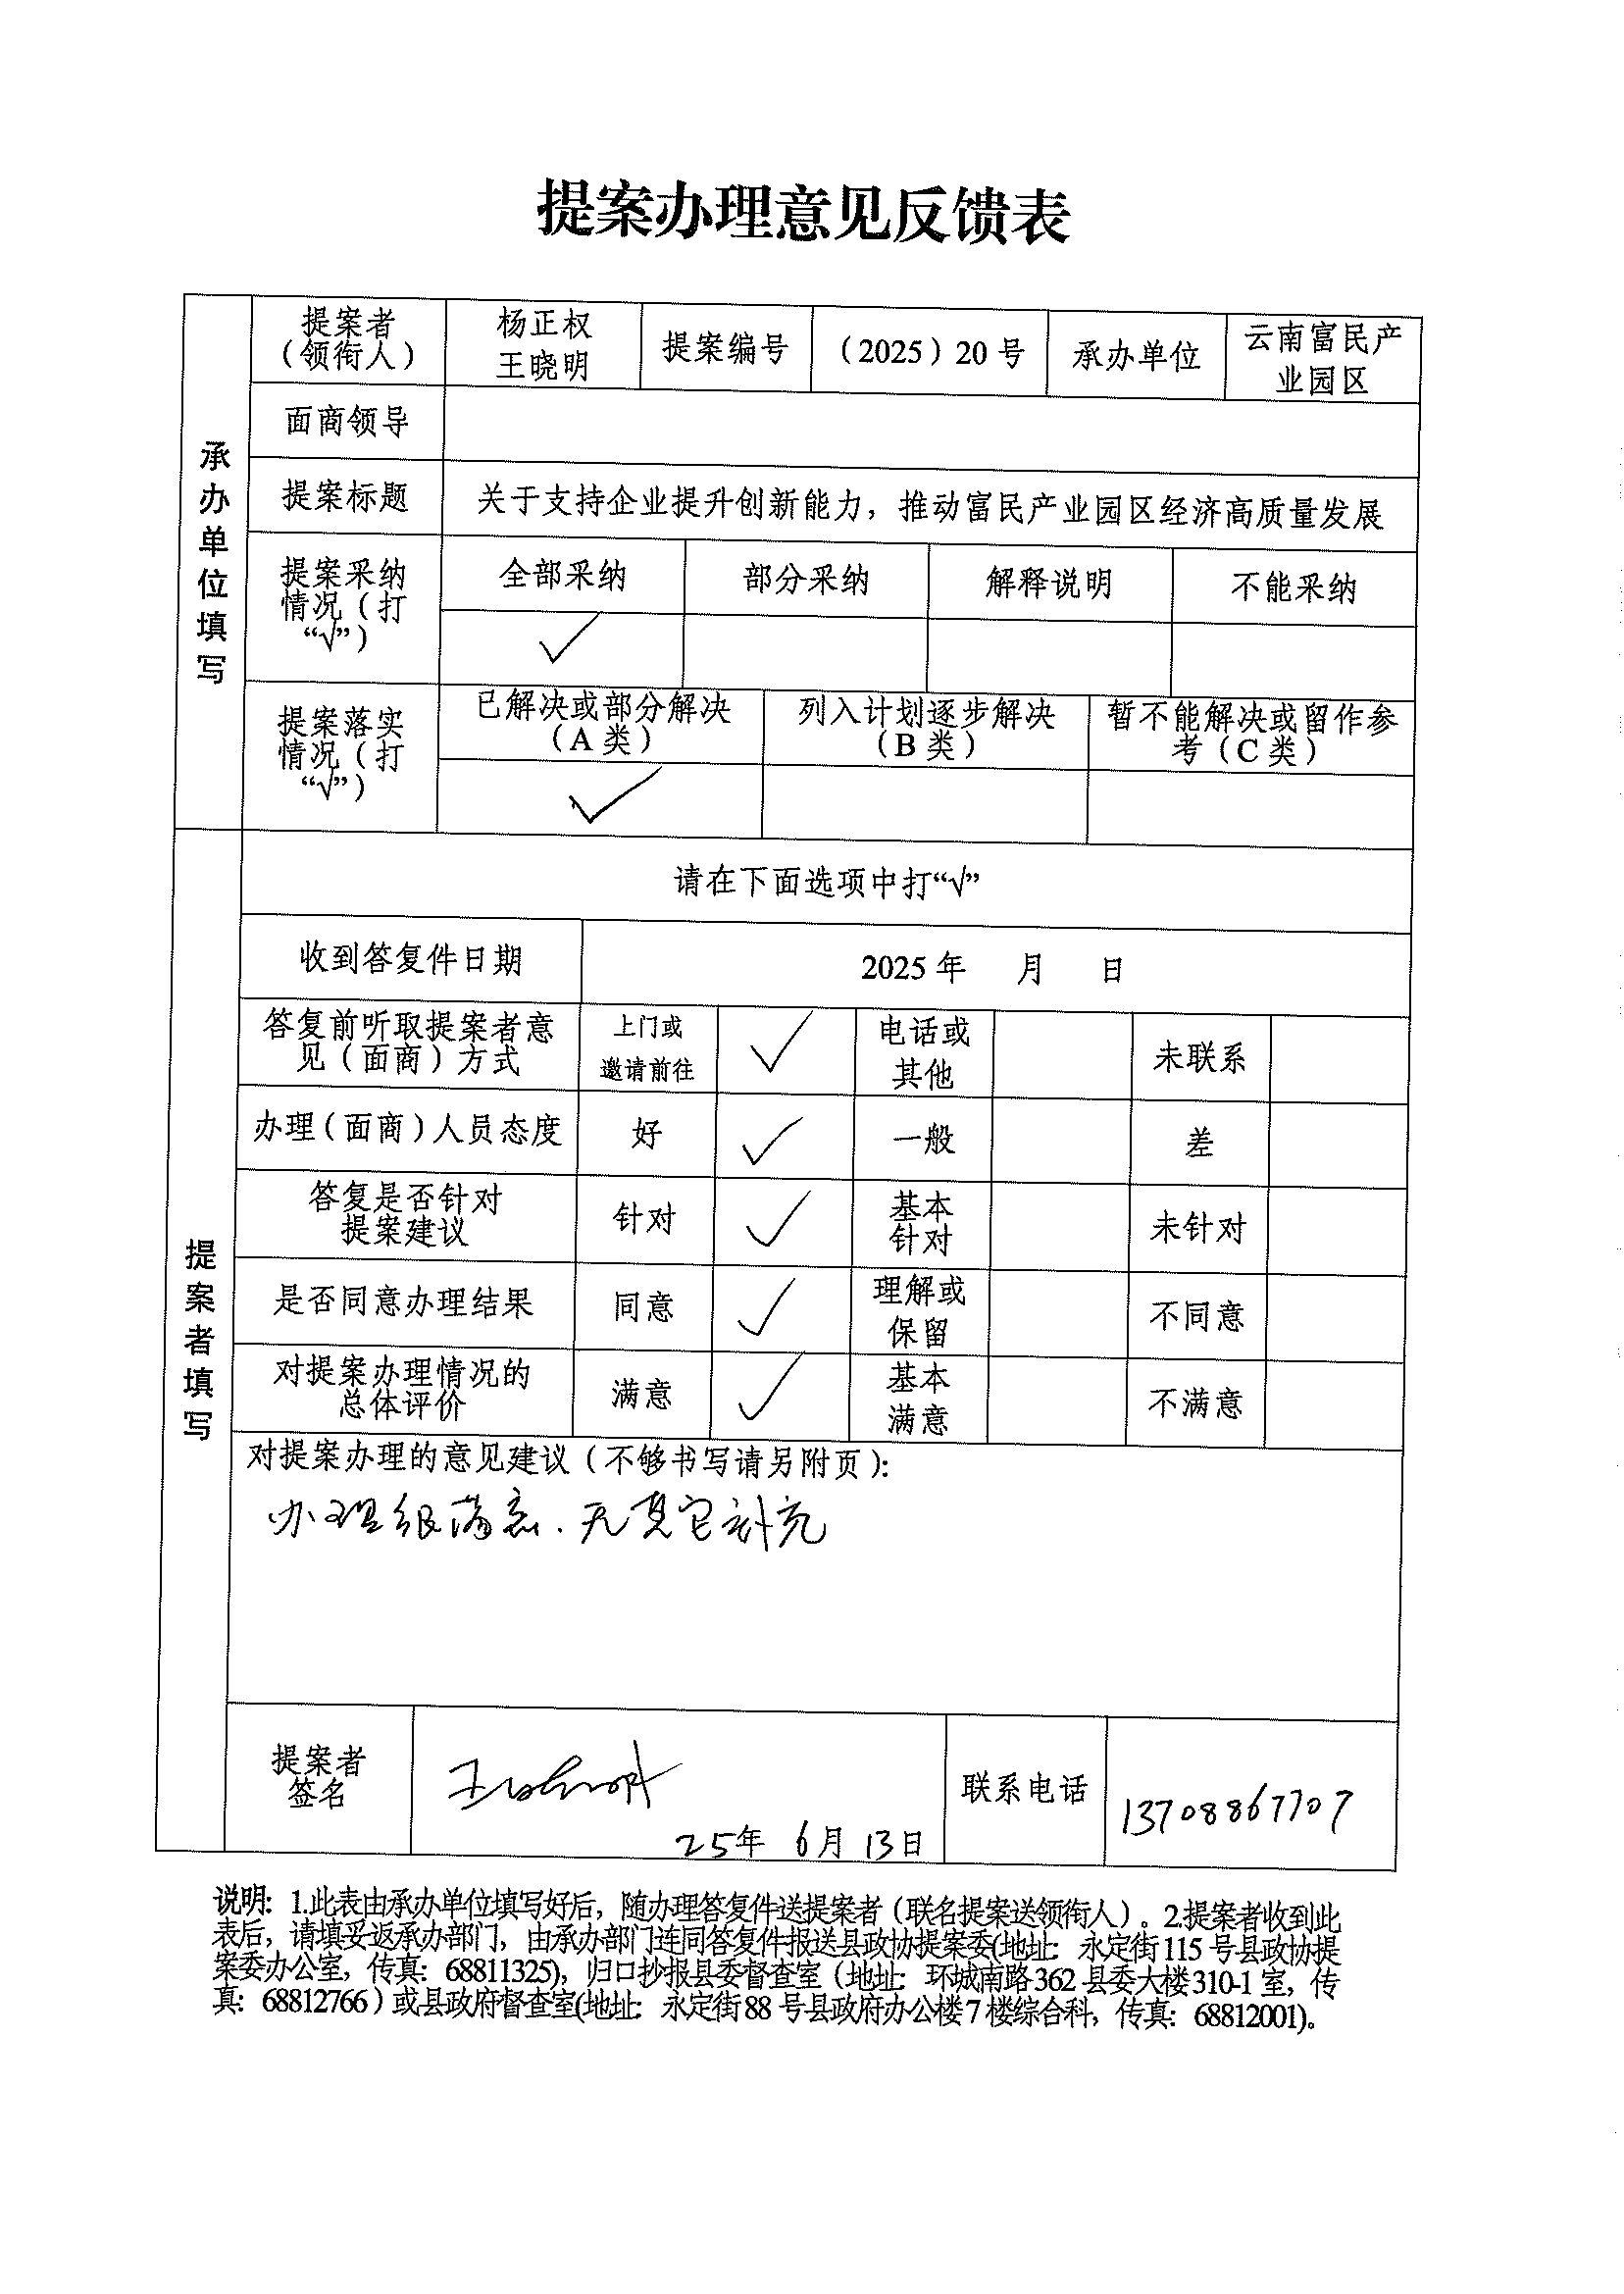 提案办理意见反馈表
提案者
（领衔人）
杨正权
王晓明
提案编号
（2025）20号
承办单位
云南富民产
业园区
承办单位填写
面商领导
提案标题
关于支持企业提升创新能力，推动富民产业园区经济高质量发展
提案采纳
情况（打
“√”）
全部采纳
部分采纳
解释说明
不能采纳
✓
提案落实
情况（打
“√”）
已解决或部分解决
（A类）
列入计划逐步解决
（B类）
暂不能解决或留作参
考（C类）
✓
提案者填写
请在下面选项中打“√”
收到答复件日期
2025年 月 日
答复前听取提案者意
见（面商）方式
上门或
邀请前往
✓
电话或
其他
未联系
办理（面商）人员态度
好
✓
一般
差
答复是否针对
提案建议
针对
✓
基本
针对
未针对
是否同意办理结果
同意
✓
理解或
保留
不同意
对提案办理情况的
总体评价
满意
✓
基本
满意
不满意
对提案办理的意见建议（不够书写请另附页）：
办理很满意.无其它补充
提案者
签名
25年 6月 13日
联系电话
13708867707
说明：1.此表由承办单位填写好后，随办理答复件送提案者（联名提案送领衔人）。2.提案者收到此
表后，请填妥返承办部门，由承办部门连同答复件报送县政协提案委(地址：永定街115号县政协提
案委办公室，传真：68811325)，归口抄报县委督查室（地址：环城南路362县委大楼310-1室，传
真：68812766）或县政府督查室(地址：永定街88号县政府办公楼7楼综合科，传真：68812001)。